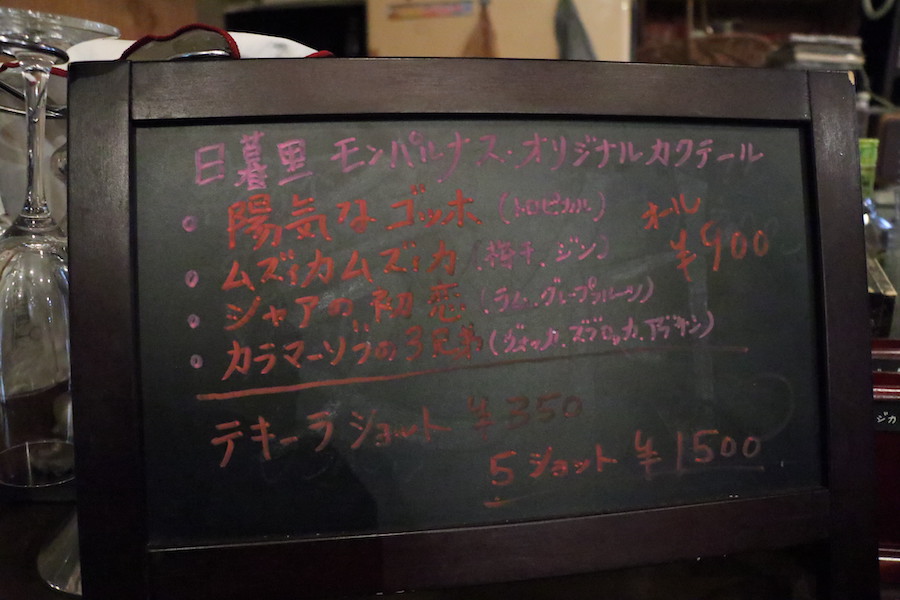 日暮里 モンパルナス・オリジナルカクテール
・陽気なゴッホ (トロピカル) オール ¥900
・ムズィカムズィカ (梅干、ジン)
・シャアの初恋 (ラム、グレープフルーツ)
・カラマーゾフの3兄弟 (ウォッカ、ズブロッカ、アブサン)
テキーラショット ¥350
5ショット ¥1500
ジカ